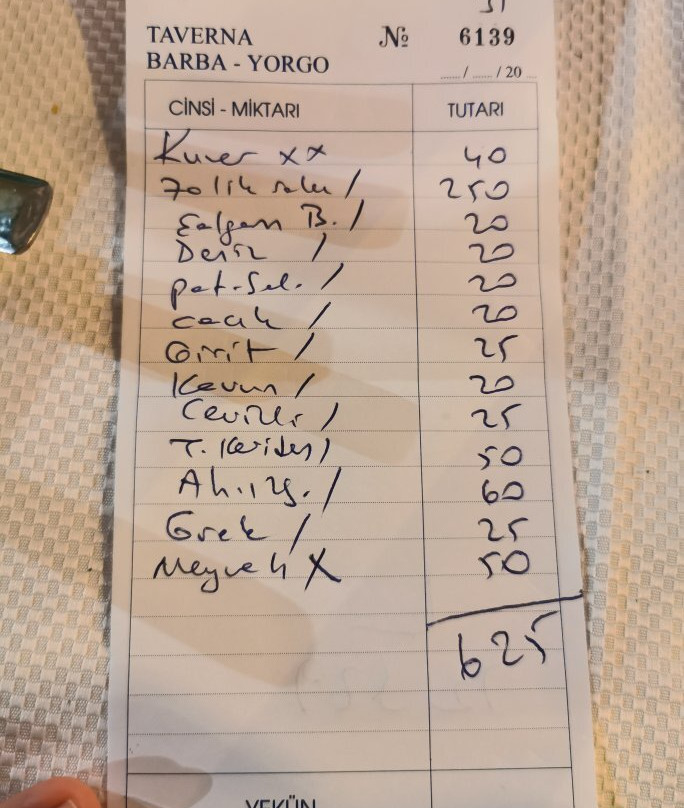 TAVERNA
BARBA - YORGO
№ 6139
...... / ...... / 20 ....
CİNSİ - MİKTARI TUTARI
Kuver xx 40
70 lik rakı / 250
Şalgam B. / 20
Deniz / 20
pat. Sal. / 20
cacık / 20
Girit / 25
Kavun / 20
Cevizli / 25
T. Karides / 50
Ah. Izg. / 60
Grek / 25
Meyve X 50
625
YEKÜN